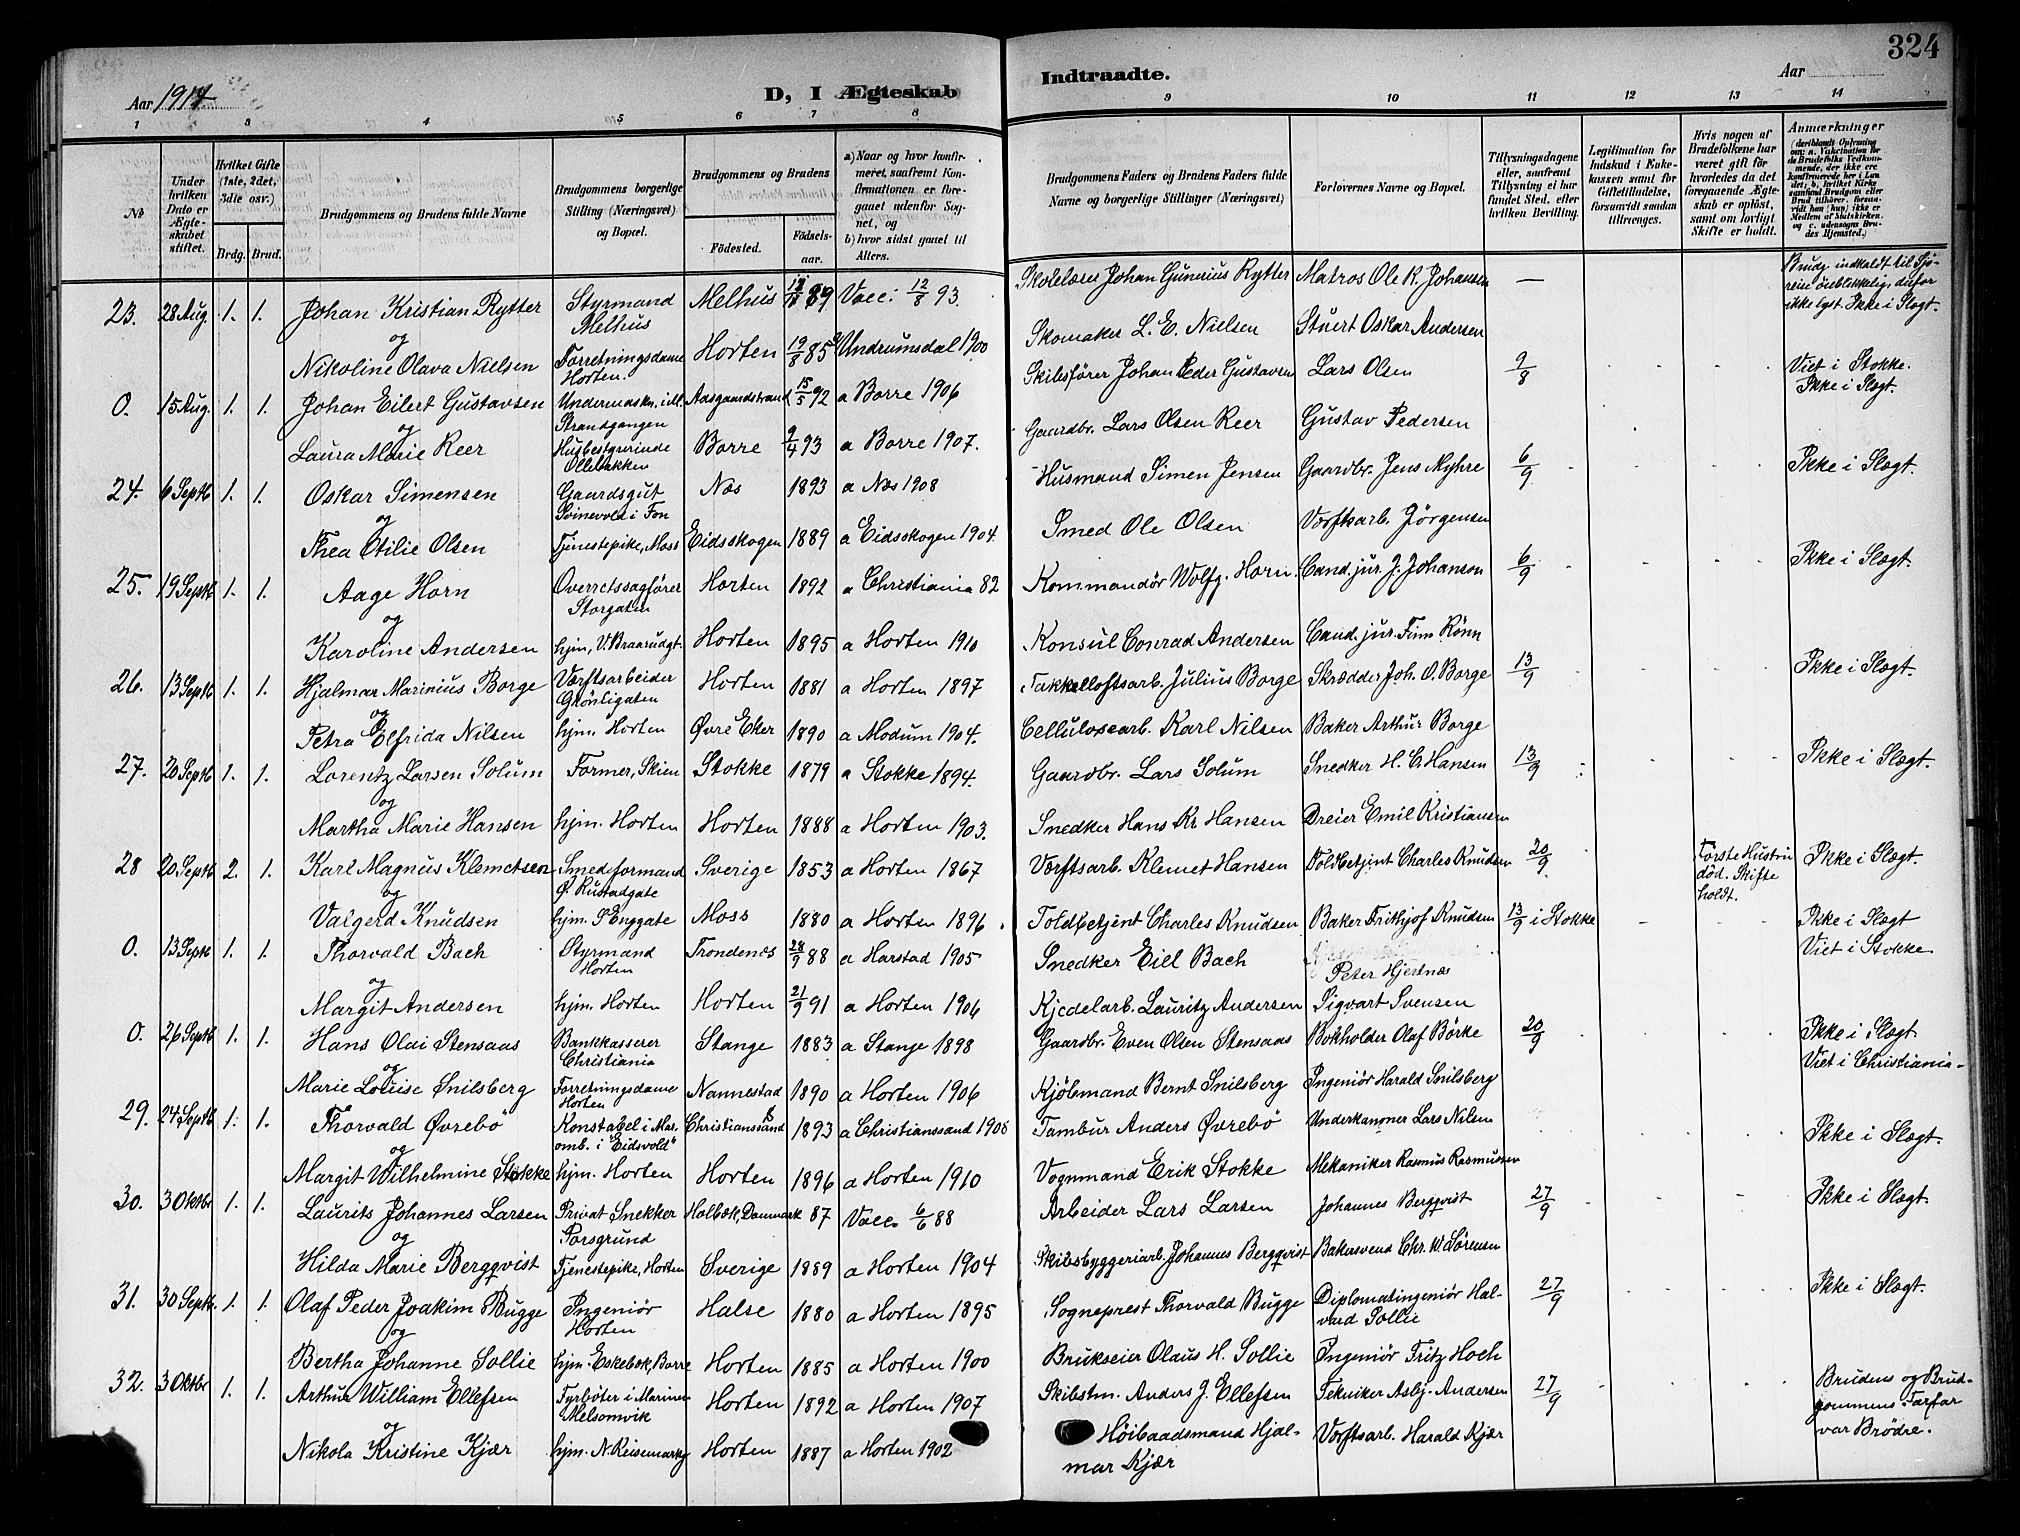 324
Aar 1914
D, I Ægteskab
Indtraadte.
Aar
1 3 4 5 6 7 8 9 10 11 12 13 14
No
Under hvilken Dato er Ægteskabet stiftet.
Hvilket Gifte (1ste, 2det, 3die osv.)
Brdg. Brud.
Brudgommens og Brudens fulde Navne
Brudgommens borgerlige Stilling (Næringsvei) og Bopæl.
Brudgommens og Brudens
Födested. Födselsaar.
a) Naar og hvor konfirmeret, saafremt Konfirmationen er foregaaet udenfor Sognet, og
b) hvor sidst gaaet til Alters.
Brudgommens Faders og Brudens Faders fulde Navne og borgerlige Stillinger (Næringsvei)
Forlovernes Navne og Bopæl.
Tillysningsdagene eller, saafremt Tillysning ei har fundet Sted, efter hvilken Bevilling.
Legitimation for Indskud i Enkekassen samt for Giftetilladelse, forsaavidt saadan tiltrænges.
Hvis nogen af Brudefolkene har været gift før hvorledes da det foregaaende Ægteskab er opløst, samt om lovligt Skifte er holdt.
Anmærkninger
23. 28 Aug. 1. 1. Johan Kristian Rytter Styrmand Melhus Melhus 89 Vacc. 12/8 93. Skolelærer Johan Gunerius Rytter Matros Ole R. Johansen — Brudg. indkaldt til Sjöreise öieblikkelig, derfor ikke lyst. Ikke i Slægt.
og
Nikoline Olava Nielsen Forretningsdame Horten. Horten 19/8 85 a Undrumsdal 1900 Skomaker L. E. Nielsen Stuert Oskar Andersen
0. 15 Aug. 1. 1. Johan Eilert Gustavsen Undermaskn. i M. Strandgangen Aasgaardstrand 15/5 92 a Borre 1906 Skibsfører Johan Peder Gustavsen Lars Olsen 9/8 Viet i Stokke. Ikke i Slægt.
og
Laura Marie Reer Husbestyrerinde Ollebakken Borre 9/4 93 a Borre 1907. Gaardbr. Lars Olsen Reer Gustav Pedersen
24. 6 Septb 1. 1. Oskar Simensen Gaardsgut Svinevold i Fon Næs 1893 a Næs 1908 Husmand Simen Jensen Gaardbr. Jens Myhre 6/9 Ikke i Slægt.
og
Thea Otilie Olsen Tjenestepike, Moss Eidsskogen 1889 a Eidsskogen 1904 Smed Ole Olsen Værftsarb. Jörgensen
25. 19 Septb 1. 1. Aage Horn Overretssagfører Storgaten Horten 1892 a Christiania 82 Kommandör Wolfg. Horn. Cand. jur. J. Johanson 6/9 Ikke i Slægt.
og
Karoline Andersen hjm, V. Braarudgt. Horten 1895 a Horten 1910 Konsul Conrad Andersen Cand. jur. Finn Rönn
26. 13 Septb 1. 1. Hjalmar Marinius Borge Værftsarbeider Grönligaten Horten 1881 a Horten 1897 Takkelloftsarb. Julius Borge Skrædder Joh. O. Borge 13/9 Ikke i Slægt.
og
Petra Elfrida Nilsen hjm. Horten Øvre Eker 1890 a Modum 1904. Cellulosearb. Karl Nilsen Baker Arthur Borge
27. 20 Septb 1. 1. Lorentz Larsen Solum Former, Skien Stokke 1879 a Stokke 1894. Gaardbr. Lars Solum Snedker H. C. Hansen 13/9 Ikke i Slægt.
og
Martha Marie Hansen hjm. Horten Horten 1888 a Horten 1903. Snedker Hans Kr. Hansen Dreier Emil Kristiansen
28 20 Septb 2. 1. Karl Magnus Klemetsen Smedeformand Ø. Rustadgate Sverige 1853 a Horten 1867 Værftsarb. Klemet Hansen Toldbetjent Charles Knudsen 20/9 Første Hustru död. Skifte holdt. Ikke i Slægt.
og
Valgerd Knudsen hjm. P Enggate Moss 1880 a Horten 1896. Toldbetjent Charles Knudsen Baker Frithjof Knudsen
0. 13 Septb 1. 1. Thorvald Bach Styrmand Horten Trondenes 28/9 88 a Harstad 1905 Snedker Eiel Bach Peter Hjertnæs 13/9 i Stokke Ikke i Slægt Viet i Stokke
og
Margit Andersen hjm. Horten Horten 21/9 91 a Horten 1906 Kjedelarb. Lauritz Andersen Sigvart Svensen
0. 26 Septb 1. 1. Hans Olai Stensaas Bankkasserer Christiania Stange 1883 a Stange 1898 Gaardbr. Even Olsen Stensaas Bokholder Olaf Börke 20/9 Ikke i Slægt. Viet i Christiania
og
Marie Louise Snilsberg Forretningsdame Horten Nannestad 1890 a Horten 1906 Kjölemand Bernt Snilsberg Ingeniör Harald Snilsberg
29. 24 Septb 1. 1. Thorvald Øvrebö Konstabel i Mar. omb. i "Eidsvold" Christianssand 1893 a Christianssand 1908 Tambur Anders Øvrebö Underkanoner Lars Nilsen Ikke i Slægt.
og
Margit Wilhelmine Stokke hjm. Horten Horten 1896 a Horten 1910 Vognmand Erik Stokke Mekaniker Rasmus Rasmussen
30. 3 Oktbr 1. 1. Laurits Johannes Larsen Privat Snekker Porsgrund Holbæk, Danmark 87 Vacc. 6/6 88 Arbeider Lars Larsen Johannes Bergqvist 27/9 Ikke i Slægt.
og
Hilda Marie Bergqvist Tjenestepike, Horten Sverige 1889 a Horten 1904 Skibsbyggeriarb. Johannes Bergqvist Bakersvend Chr. W. Sörensen
31. 30 Septb. 1. 1. Olaf Peder Joakim Bugge Ingeniör Horten Halse 1880 a Horten 1895 Sogneprest Thorvald Bugge Diplomatingeniör Halvard Sollie 27/9 Ikke i Slægt.
og
Bertha Johanne Sollie hjm. Eskebæk, Borre Horten 1885 a Horten 1900 Brukseier Olaus H. Sollie Ingeniör Fritz Hoch
32. 3 Oktbr 1. 1. Arthur William Ellefsen Fyrböter i Marinen Melsomvik Horten 1892 a Horten 1907 Skibstm. Anders J. Ellefsen Tekniker Asbj. Andersen 27/9 Brudens og Brudgommens Farfar var Brödre.
og
Nikola Kristine Kjær hjm. N. Keisemarks Horten 1887 a Horten 1902 Höibaadsmand Hjalmar Kjær Værftsarb. Harald Kjær